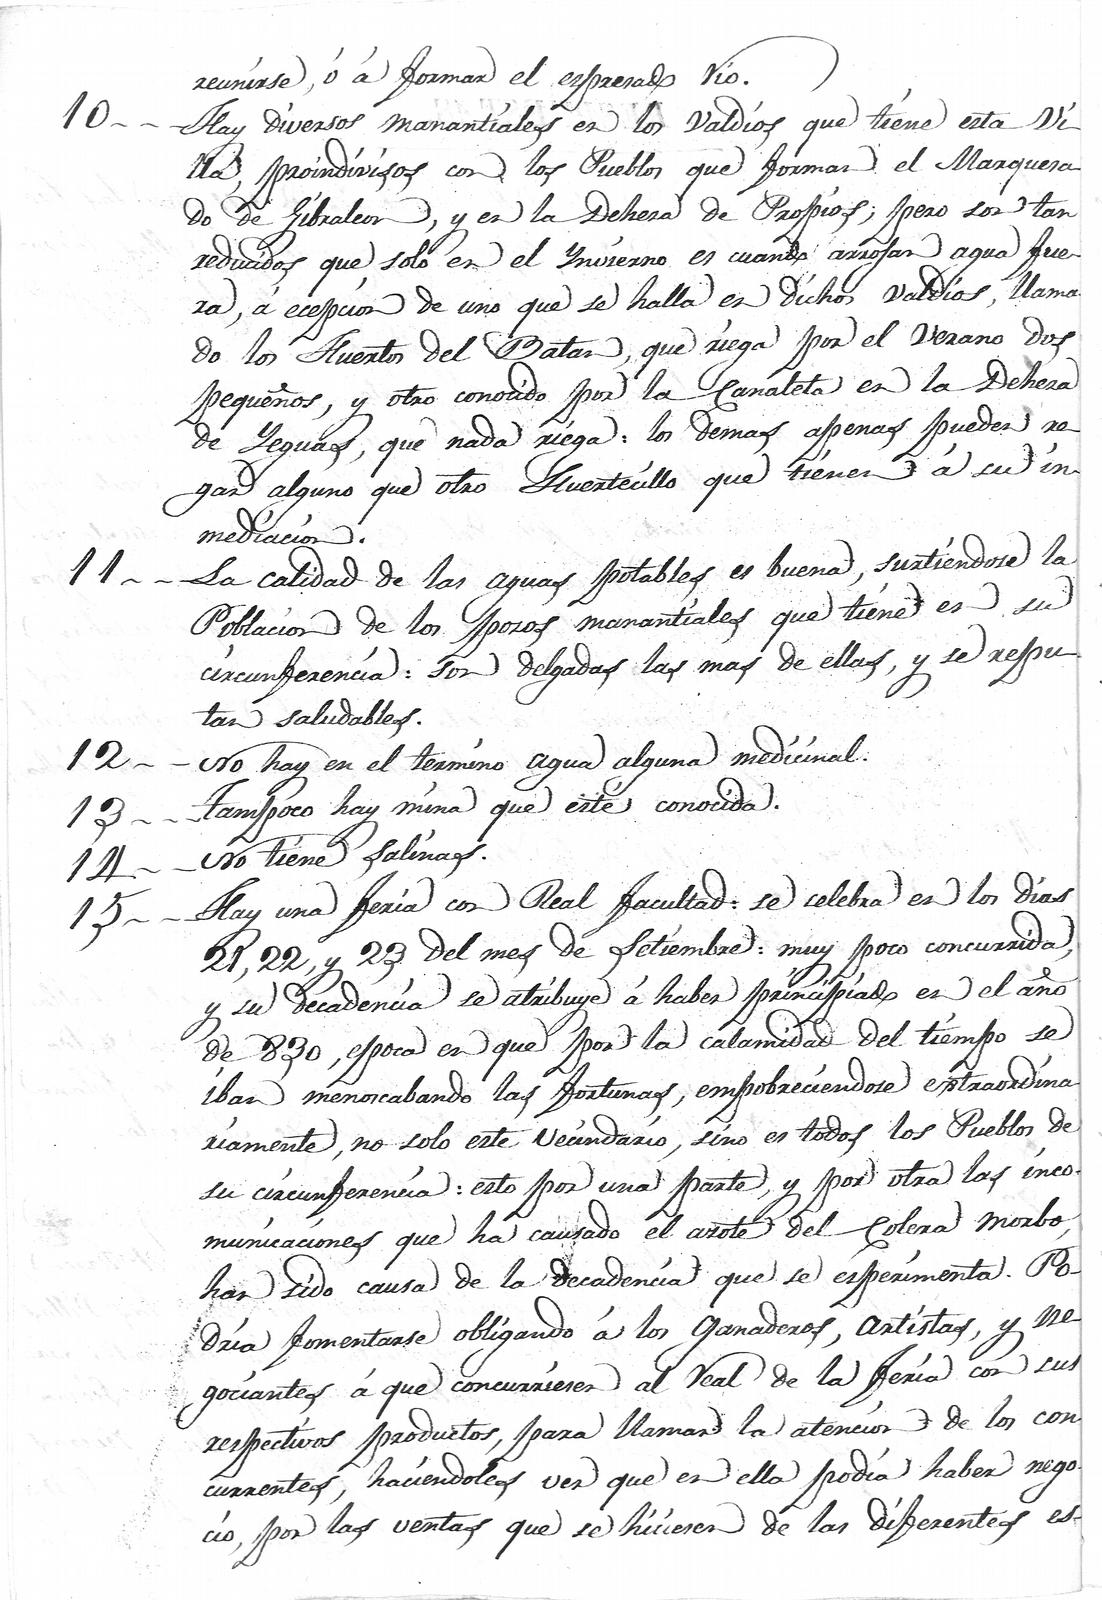 reunirse, ó á formar el espresado rio.
10 - - Hay diversos manantiales en los Valdios que tiene esta Vi
lla, proindivisos con los Pueblos que forman el Marquesa
do de Gibraleon, y en la Dehesa de Propios; pero son tan
reducidos que solo en el Ynvierno es cuando arrojan agua fue
ra, á ecepcion de uno que se halla en dichos Valdios, llama
do los Huertos del Batan, que riega por el Verano dos
pequeños, y otro conocido por la Canaleta en la Dehesa
de Yeguas, que nada riega: los demas apenas pueden re
gar alguno que otro Huertecillo que tienen á su in
mediacion.
11 - - La calidad de las aguas potables es buena, surtiendose la
Poblacion de los pozos manantiales que tiene en su
circunferencia: son delgadas las mas de ellas, y se repu
tan saludables.
12 - - No hay en el termino agua alguna medicinal.
13 - - Tampoco hay mina que esté conocida.
14 - - No tiene salinas.
15 - - Hay una feria con Real facultad: se celebra en los dias
21, 22, y 23 del mes de Setiembre: muy poco concurrida,
y su decadencia se atribuye á haber principiado en el año
de 830, epoca en que por la calamidad del tiempo se
iban menoscabando las fortunas, empobreciendose extraordina
riamente, no solo este vecindario, sino es todos los Pueblos de
su circunferencia: esto por una parte, y por otra las inco-
municaciones que ha causado el azote del Colera morbo,
han sido causa de la decadencia que se esperimenta. Po-
dria fomentarse obligando á los Ganaderos, Artistas, y ne
gociantes á que concurriesen al Real de la feria con sus
respectivos productos, para llamar la atencion de los con
currentes, haciendoles ver que en ella podia haber nego-
cio, por las ventas que se hiciesen de las diferentes es-